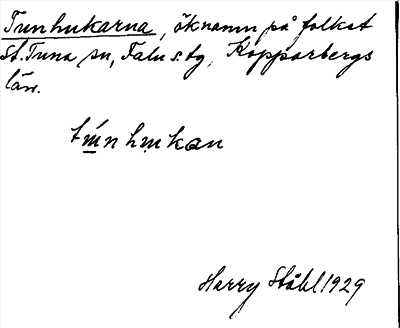 Tunhukarna, öknamn på folket
St. Tuna sn, Falu s. tg, Kopparbergs
län.
túnhukan
Harry Ståhl 1929